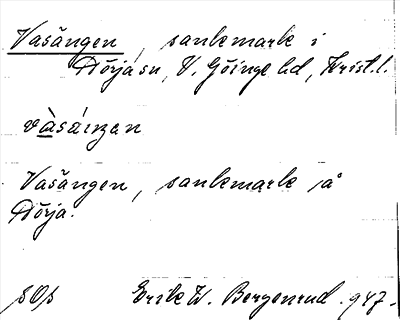 Vasängen, sankmark i
Dörja sn, V. Göinge hd, Krist. l.
vàsáŋən
Vasängen, sankmark på
Dörja.
Erik W. Bergenrud. 1947.